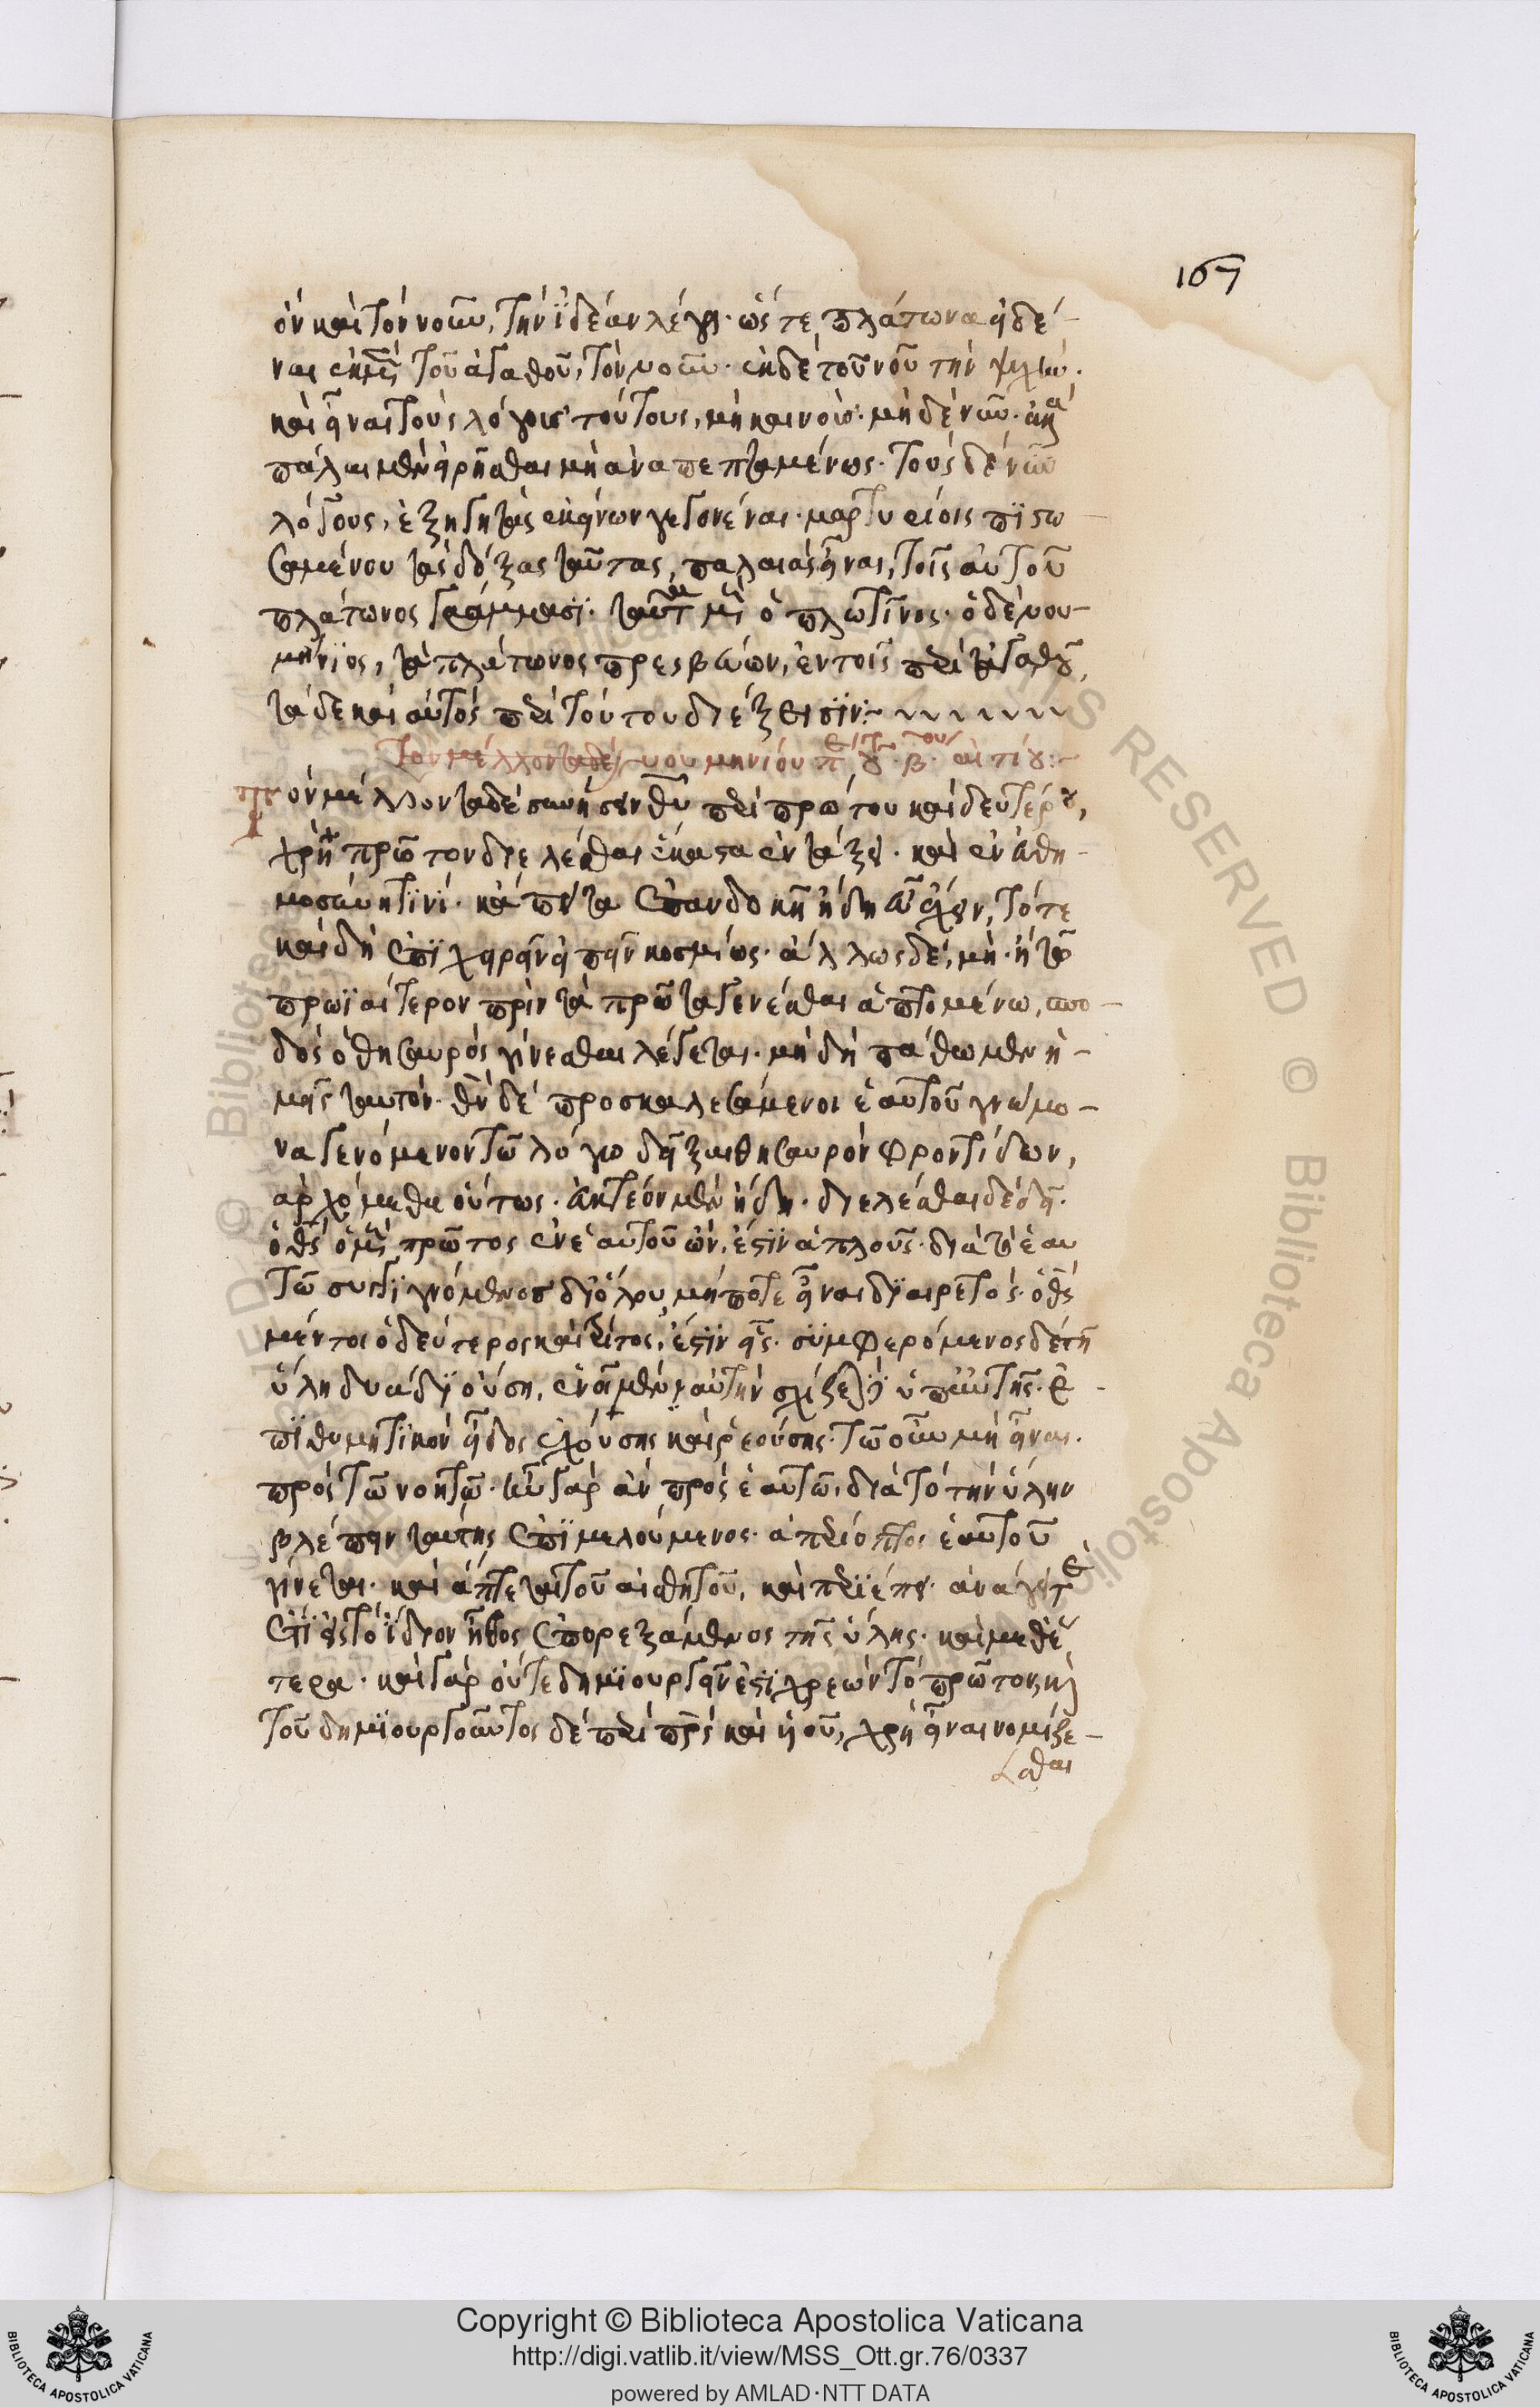 167
ὂν καὶ τὸν νοῦν, τὴν ἰδέαν λέγει· ὥστε πλάτωνα εἰδέ-
ναι ἐκ μὲν τοῦ ἀγαθοῦ, τὸν νοῦν· ἐκ δὲ τοῦ νοῦ τὴν ψυχήν·
καὶ εἶναι τοὺς λόγους τούτους, μὴ καινοὺς· μὴ δὲ νῦν· ἀλλὰ
πάλαι μὲν εἰρῆσθαι μὴ ἀναπεπταμένως· τοὺς δὲ νῦν
λόγους, ἐξηγητὰς ἐκείνων γεγονέναι· μαρτυρίοις πιστω
σαμένου τὰς δόξας ταύτας, παλαιὰς εἶναι, τοῖς αὐτοῦ
πλάτωνος γράμμασι· ταῦτα μὲν ὁ πλωτῖνος· ὁ δὲ νου-
μήνιος, τὰ πλάτωνος πρεσβεύων, ἐν τοῖς περὶ τἀγαθοῦ,
τάδε καὶ αὐτὸς περὶ τούτου διέξεισιν:~
τὸν μέλλοντα δὲ νουμηνίου περὶ τοῦ β αἰτίου:~
Τὸν μέλλοντα δὲ συνήσειν θεοῦ περὶ πρώτου καὶ δευτέρου,
χρὴ πρῶτον διελέσθαι ἕκαστα ἐν τάξει· καὶ ἐν εὐθη-
μοσύνῃ τινί· κἄπειτα ἐπὰν δοκῇ ἤδη εὖ ἔχειν, τότε
καὶ δὴ ἐπιχειρεῖν εἰπεῖν κοσμίως· ἄλλως δὲ, μή· ἢ τῷ
πρωϊαίτερον πρὶν τὰ πρῶτα γενέσθαι ἁπτομένῳ, σπο-
δὸς ὁ θησαυρὸς γίνεσθαι λέγεται· μὴ δὴ πάθωμεν ἡ-
μεῖς ταυτόν· θεὸν δὲ προσκαλεσάμενοι ἑαυτοῦ γνώμο-
να γενόμενον τῷ λόγῳ δεῖξαι θησαυρὸν φροντίδων,
ἀρχόμεθα οὕτως· εὐκτέον μὲν ἤδη· διελέσθαι δὲ δεῖ·
ὁ θεὸς ὁ μὲν πρῶτος ἐν ἑαυτοῦ ὢν, ἔστιν ἁπλοῦς· διὰ τὸ ἑαυ
τῷ συγγιγνόμενος διόλου μήποτε εἶναι διαιρετός· ὁ θεὸς
μέντοι ὁ δεύτερος καὶ τρίτος, ἔστιν εἷς· συμφερόμενος δὲ τῇ
ὕλῃ δυάδι οὔσῃ, ἑνοῖ μὲν αὐτὴν σχίζεται δὲ ὑπ' αὐτῆς· ἐ-
πιθυμητικὸν εἶδος ἐχούσης καὶ ῥεούσης· τῷ οὖν μὴ εἶναι·
πρὸς τῷ νοητῷ· ἦν γὰρ ἂν πρὸς ἑαυτῷ, διὰ τὸ τὴν ὕλην
βλέπειν ταύτης ἐπιμελούμενος· ἀπερίοπτος ἑαυτοῦ
γίνεται· καὶ ἅπτεται τοῦ αἰσθητοῦ, καὶ περιέπει· ἀνάγει τε
ἔτι εἰς τὸ ἴδιον ἦθος ἐπορεξάμενος τῆς ὕλης· καὶ μεθ' ἕ
τερα· καὶ γὰρ οὔτε δημιουργεῖν ἔστι χρεὼν τὸ πρῶτον, καὶ
τοῦ δημιουργοῦντος δὲ περὶ πρὸς καὶ ἡ οὐ, χρὴ εἶναι νομίζε-
σθαι
Copyright © Biblioteca Apostolica Vaticana
http://digi.vatlib.it/view/MSS_Ott.gr.76/0337
powered by AMLAD·NTT DATA